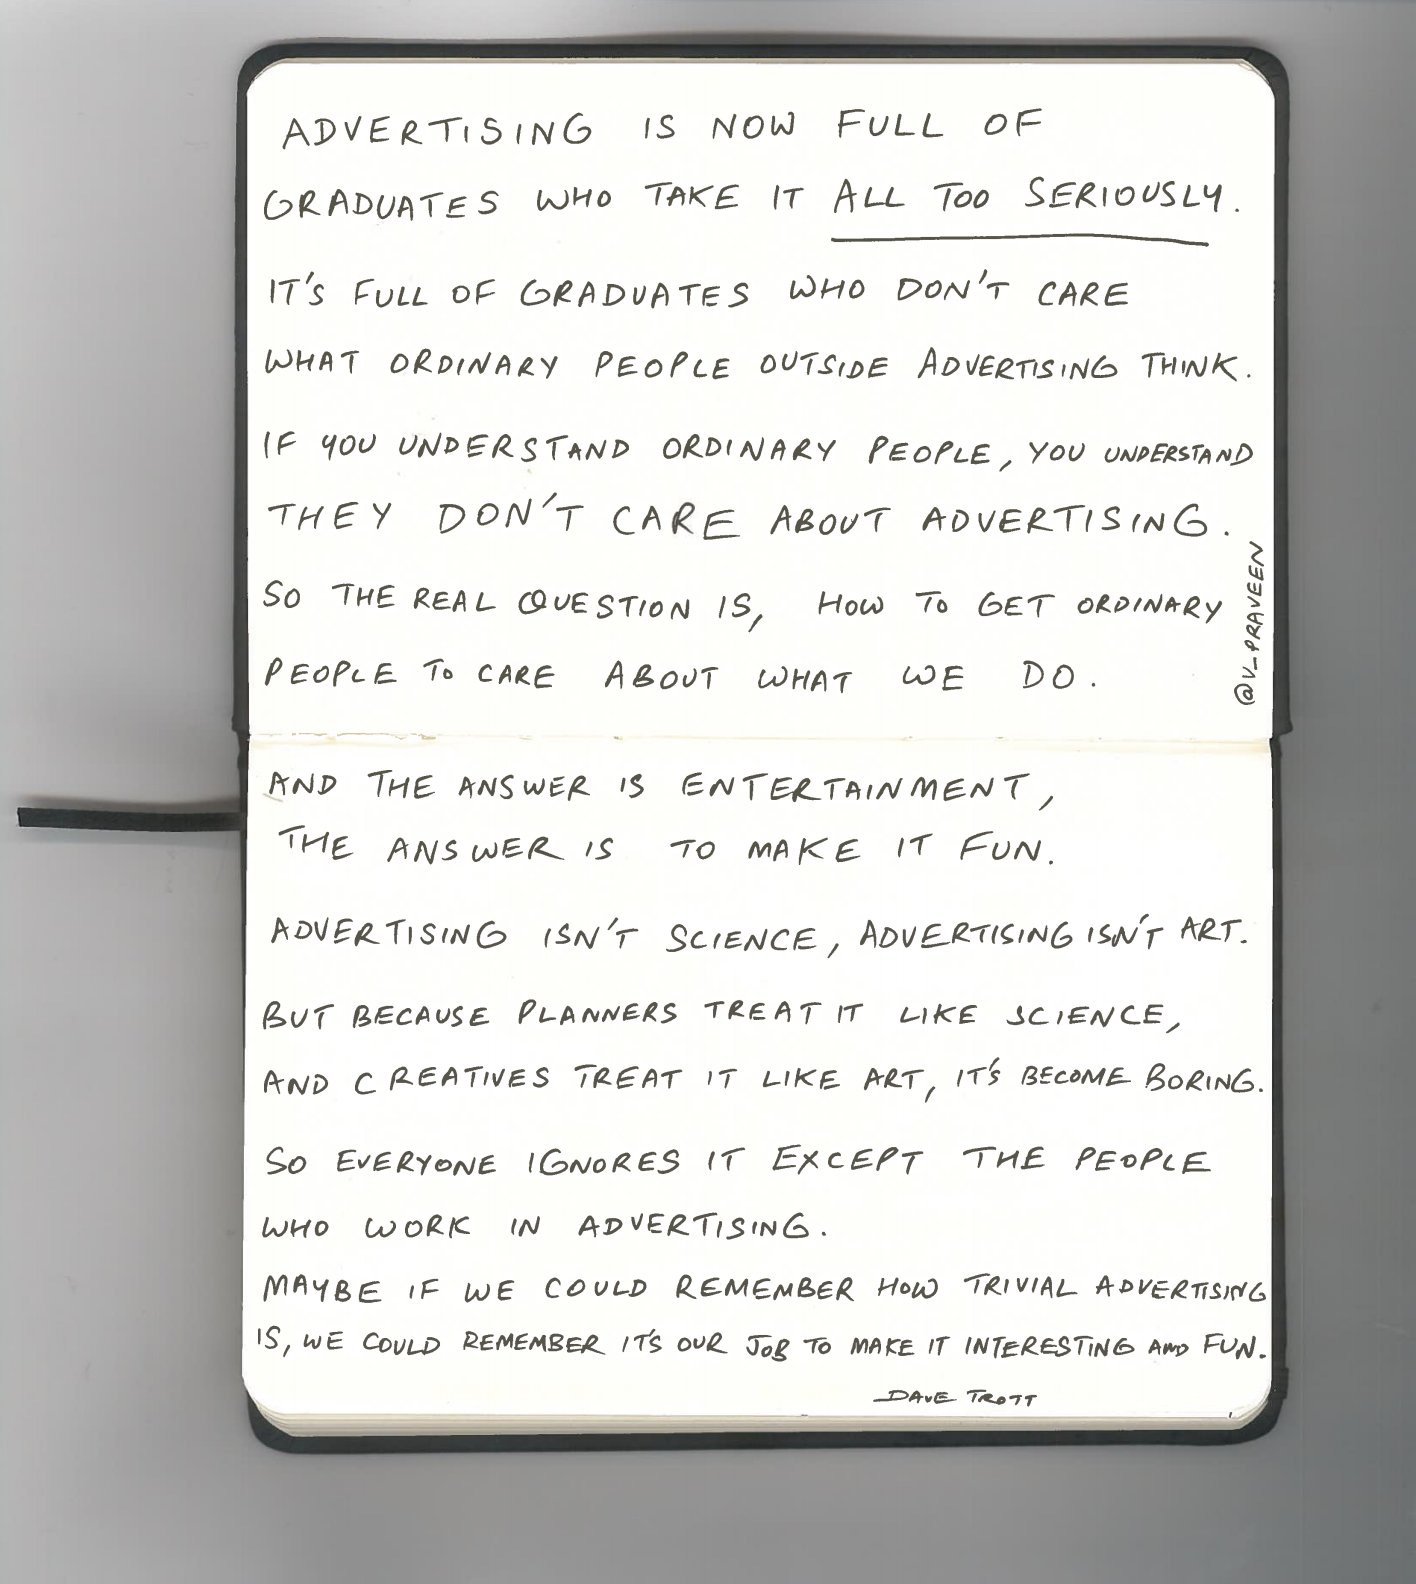 ADVERTISING IS NOW FULL OF
GRADUATES WHO TAKE IT ALL TOO SERIOUSLY.
IT'S FULL OF GRADUATES WHO DON'T CARE
WHAT ORDINARY PEOPLE OUTSIDE ADVERTISING THINK.
IF YOU UNDERSTAND ORDINARY PEOPLE, YOU UNDERSTAND
THEY DON'T CARE ABOUT ADVERTISING.
SO THE REAL QUESTION IS, HOW TO GET ORDINARY
PEOPLE TO CARE ABOUT WHAT WE DO.
@V_PRAVEEN
AND THE ANSWER IS ENTERTAINMENT,
THE ANSWER IS TO MAKE IT FUN.
ADVERTISING ISN'T SCIENCE, ADVERTISING ISN'T ART.
BUT BECAUSE PLANNERS TREAT IT LIKE SCIENCE,
AND CREATIVES TREAT IT LIKE ART, IT'S BECOME BORING.
SO EVERYONE IGNORES IT EXCEPT THE PEOPLE
WHO WORK IN ADVERTISING.
MAYBE IF WE COULD REMEMBER HOW TRIVIAL ADVERTISING
IS, WE COULD REMEMBER IT'S OUR JOB TO MAKE IT INTERESTING AND FUN.
—DAVE TROTT